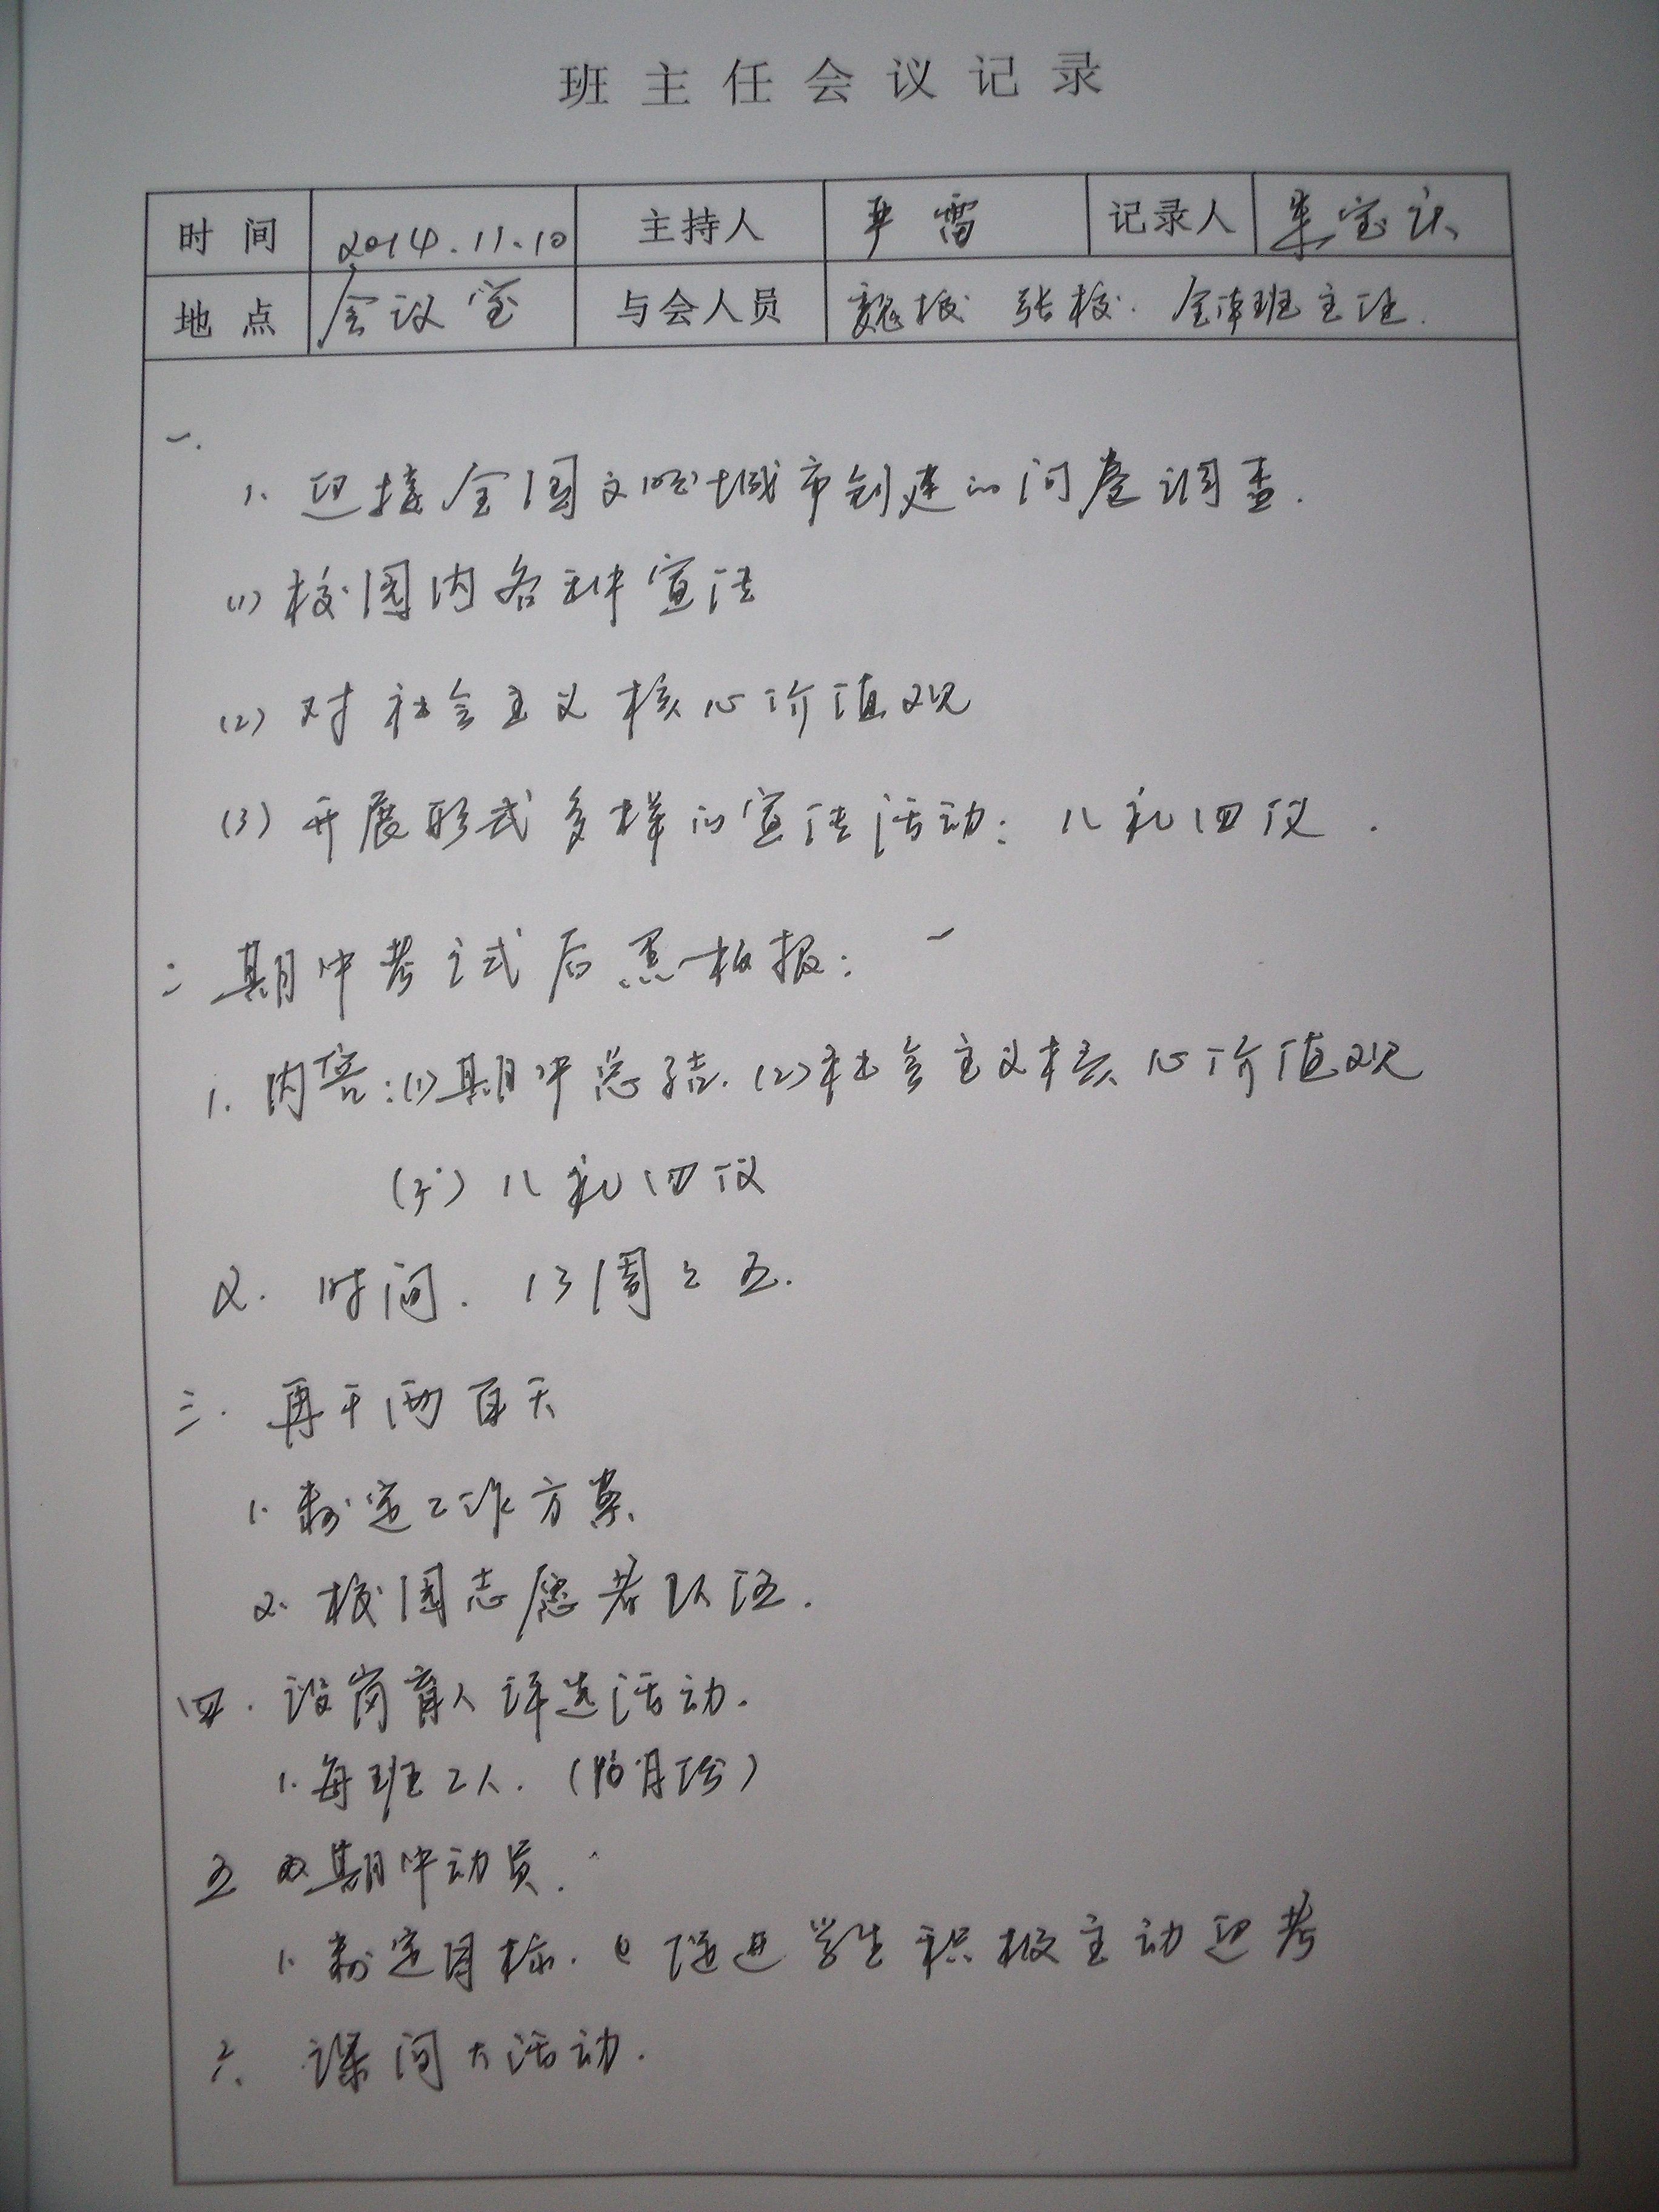 班主任会议记录
时间 2014.11.10 主持人 雷 记录人 朱宝
地点 会议室 与会人员 魏校 张校. 全体班主任.
一.
1. 迎接全国文明城市创建的问卷调查.
(1) 校园内各种宣传
(2) 对社会主义核心价值观
(3) 开展形式多样的宣传活动: 八礼四仪.
二 期中考试后黑板报:
1. 内容:(1)期中总结.(2)社会主义核心价值观
(3) 八礼四仪
2. 时间. 13周之五.
三. 再干两百天
1. 制定工作方案.
2. 校园志愿者队伍.
四. 设岗育人评选活动.
1. 每班2人. (10月份)
五 期中动员.
1. 制定目标. 促进学生积极主动迎考
六. 课间大活动.